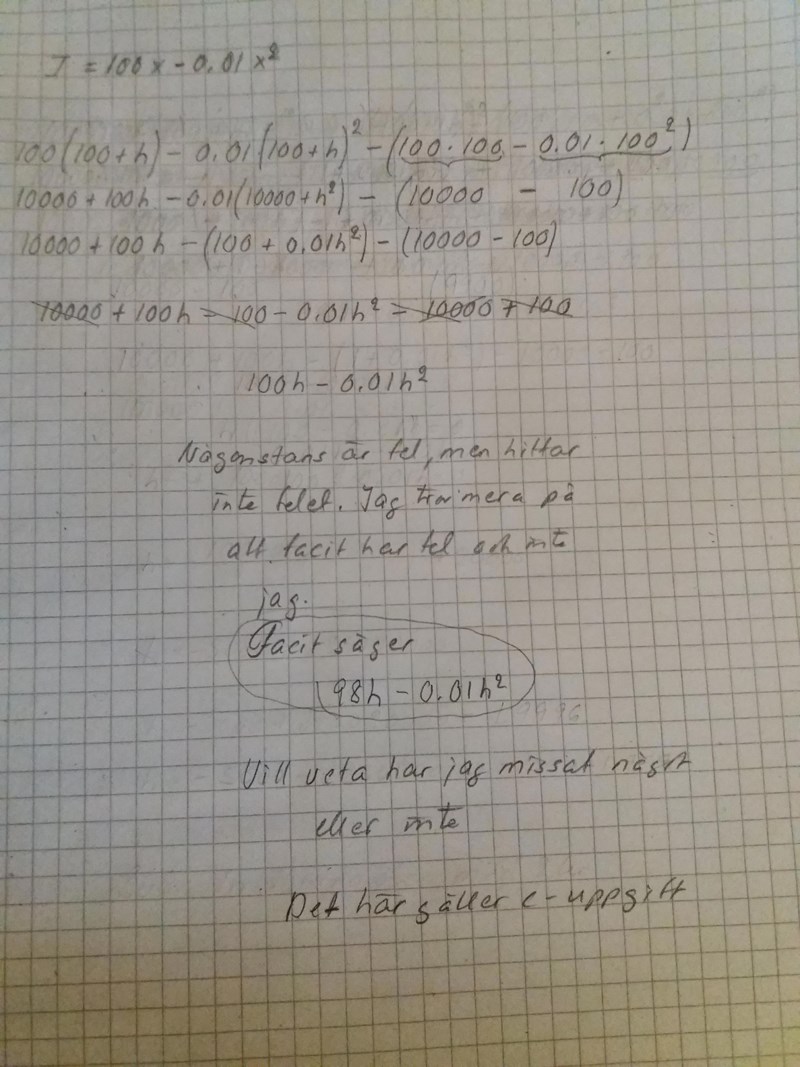 I = 100x - 0.01x²
100(100+h) - 0.01(100+h)² - (100·100 - 0.01·100²)
10000 + 100h - 0.01(10000+h²) - (10000 - 100)
10000 + 100h - (100 + 0.01h²) - (10000 - 100)
10000 + 100h - 100 - 0.01h² - 10000 + 100
100h - 0.01h²
Någonstans är fel, men hittar
inte felet. Jag tror mera på
att facit har fel och inte
jag.
Facit säger
98h - 0.01h²
Vill veta har jag missat något
eller inte
Det här gäller c-uppgift